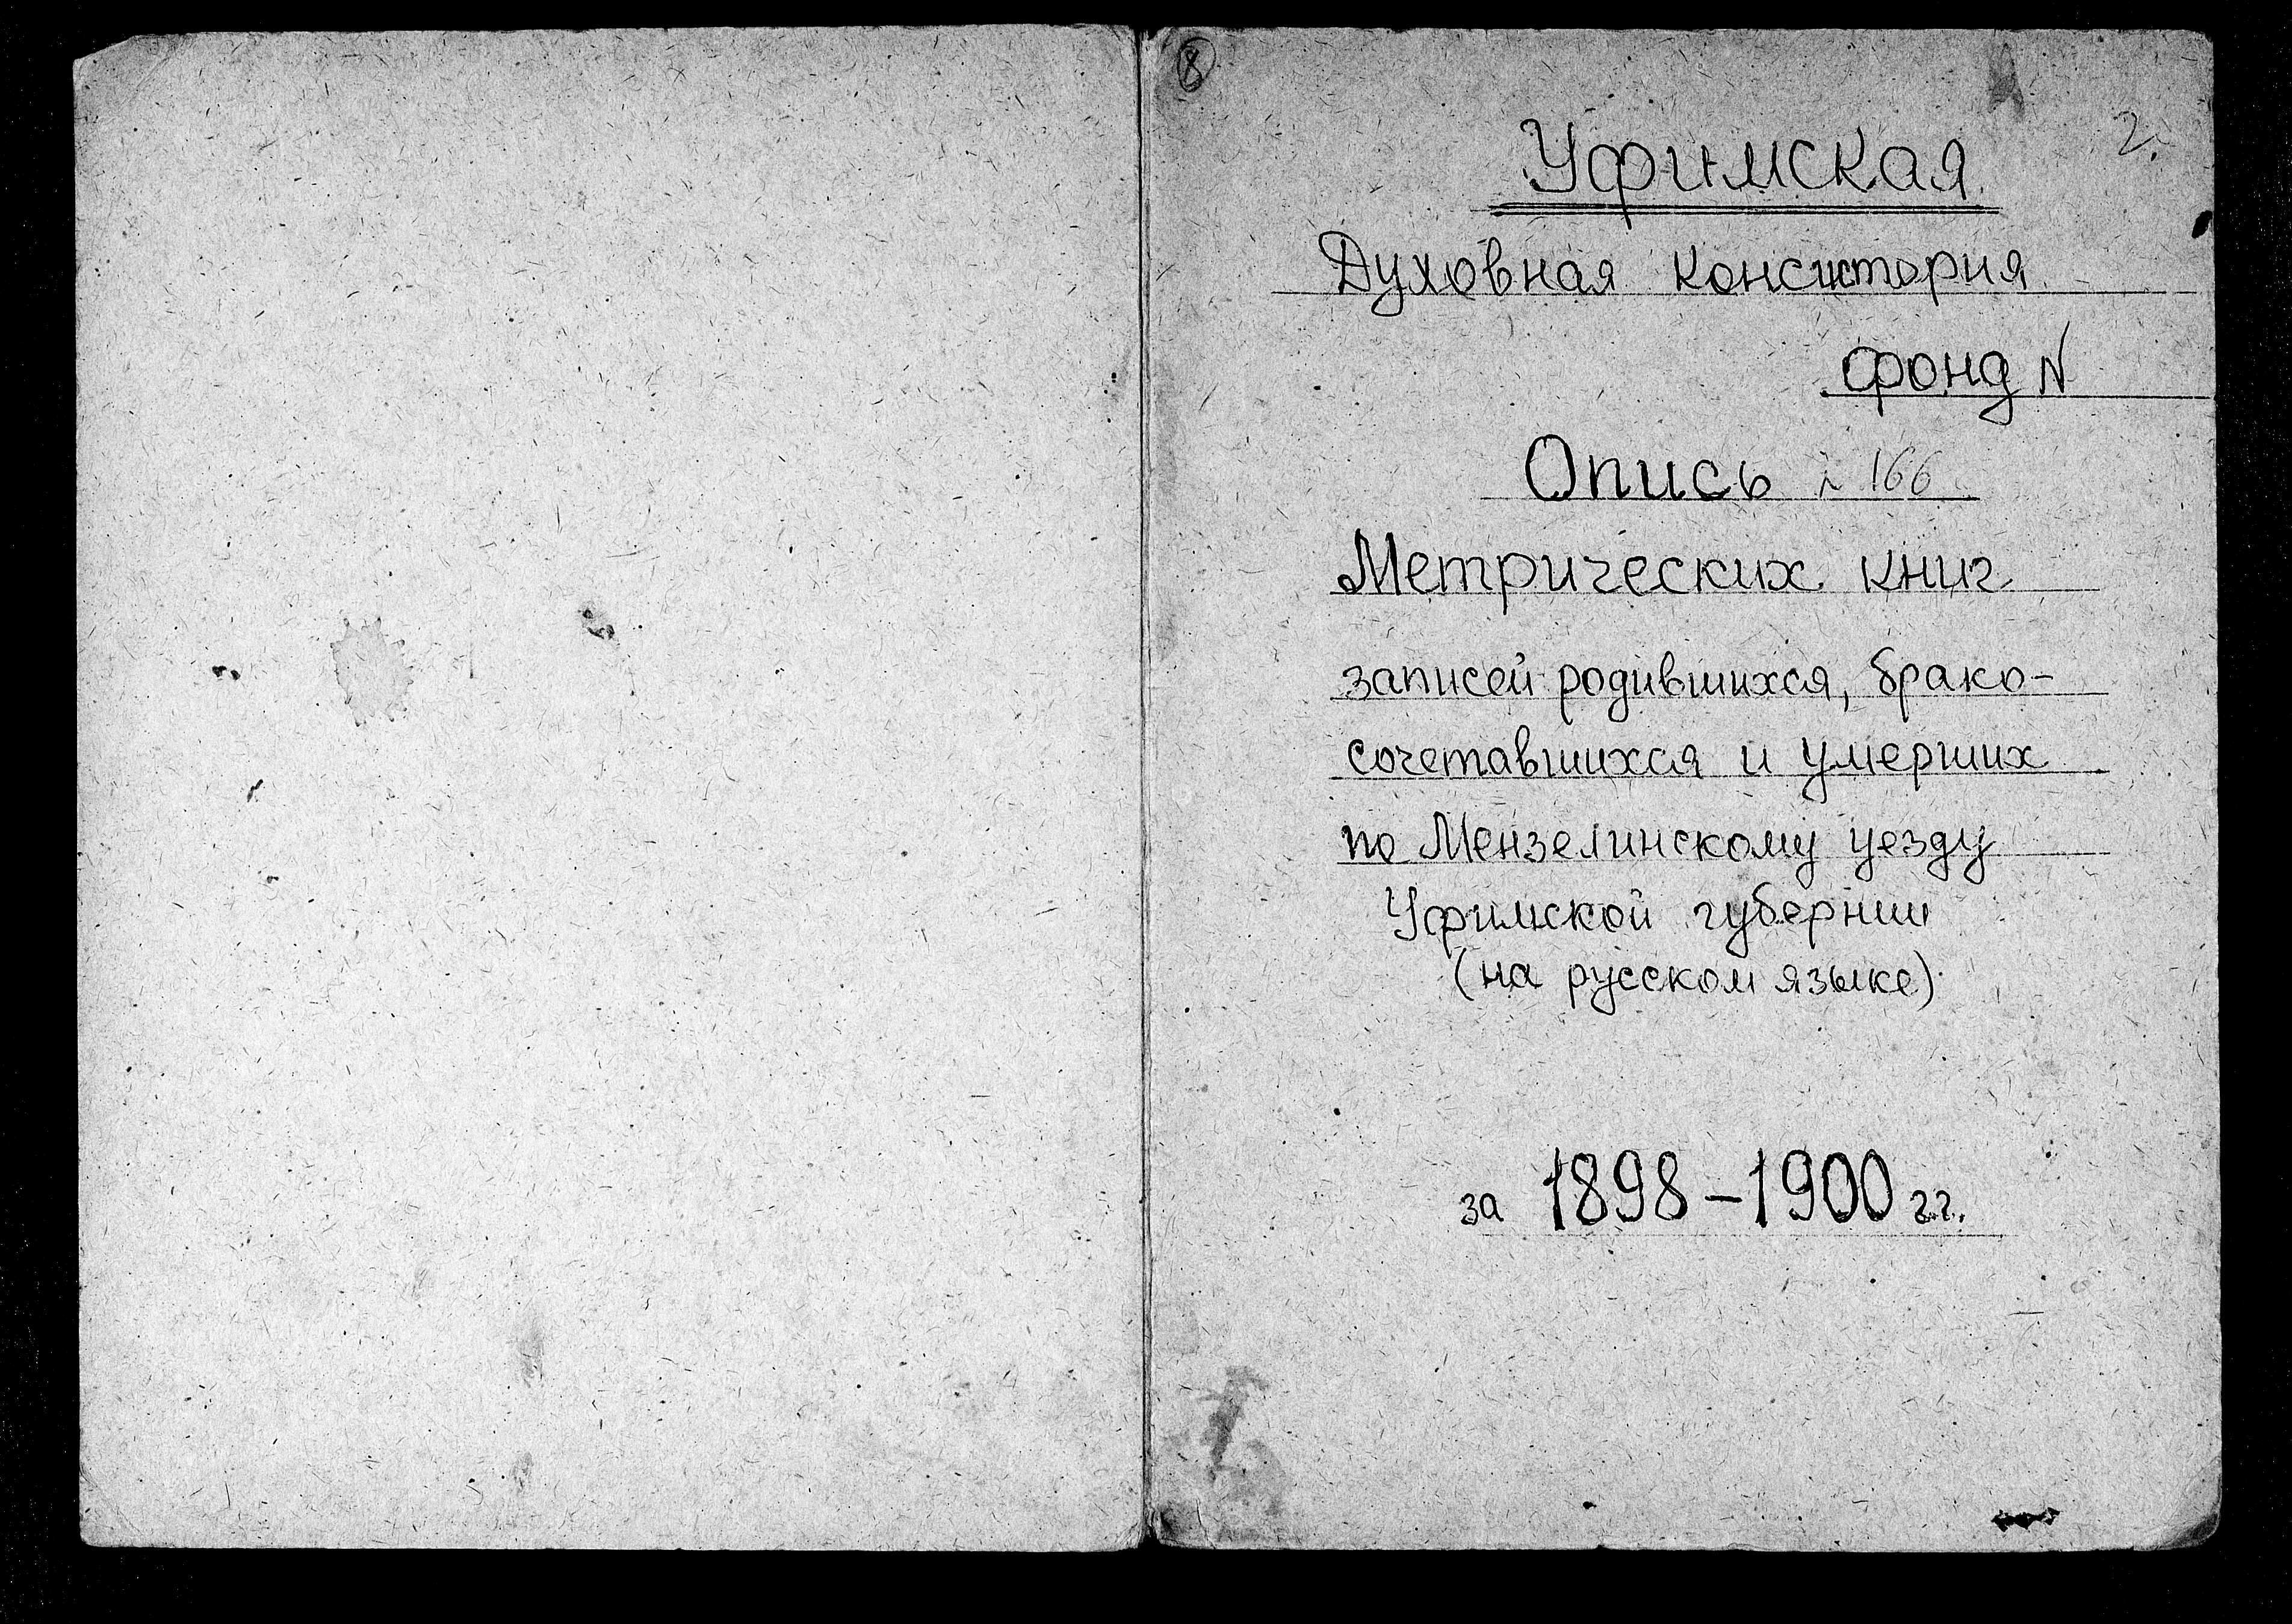 8
2.
Уфимская
Духовная консистория
фонд N
Опись N 166
Метрических книг
записей родившихся, брако-
сочетавшихся и умерших
по Мензелинскому уезду
Уфимской губернии
(на русском языке)
за 1898-1900 г.г.